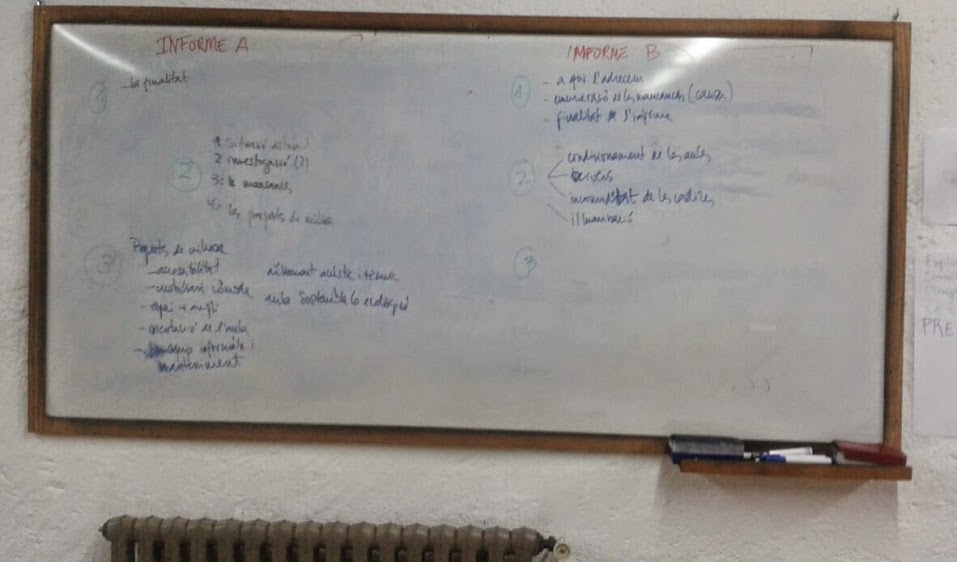 INFORME A
1
- la finalitat
2
1 Situació actual
2 investigació (?)
3: les mancances
4.- les propostes de millora
3
Propostes de millora
- accessibilitat
- mobiliari còmode
- espai + ampli
- orientació de l'aula
- equip informàtic i
manteniment
aïllament acústic i tèrmic
aula sostenible
INFORME B
1
- a qui l'adrecem
- enumeració de les mancances (causa)
- finalitat de l'informe
2
condicionament de les aules
serveis
incomoditat de les cadires
il·luminació
3
PRE